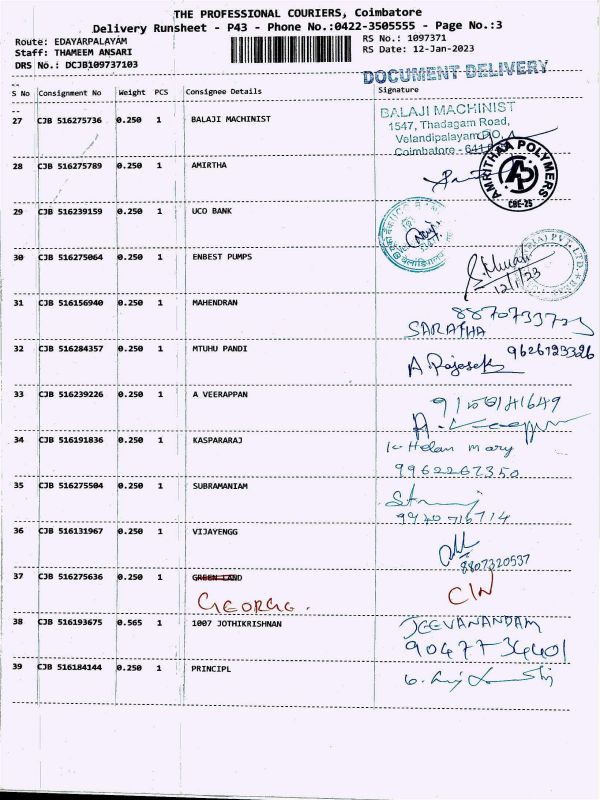 THE PROFESSIONAL COURIERS, Coimbatore
Delivery Runsheet - P43 - Phone No.:0422-3505555 - Page No.:3
Route: EDAYARPALAYAM RS No.: 1097371
Staff: THAMEEM ANSARI RS Date: 12-Jan-2023
DRS No.: DCJB109737103
DOCUMENT DELIVERY
S No Consignment No Weight PCS Consignee Details Signature
27 CJB 516275736 0.250 1 BALAJI MACHINIST
BALAJI MACHINIST
1547, Thadagam Road,
Velandipalayam PO,
Coimbatore
28 CJB 516275789 0.250 1 AMIRTHA
AMRITHAA POLYMERS
AP
CBE-25
29 CJB 516239159 0.250 1 UCO BANK
30 CJB 516275064 0.250 1 ENBEST PUMPS
PVT. LTD
12/1/23
31 CJB 516156940 0.250 1 MAHENDRAN
8870733723
SARATHA
32 CJB 516284357 0.250 1 MTUHU PANDI
9626123326
A Rajasek
33 CJB 516239226 0.250 1 A VEERAPPAN
34 CJB 516191836 0.250 1 KASPARARAJ
K Helan mary
9962267350
35 CJB 516275504 0.250 1 SUBRAMANIAM
9940716714
36 CJB 516131967 0.250 1 VIJAYENGG
8807320537
37 CJB 516275636 0.250 1 GREEN LAND
GEORGE. C/N
38 CJB 516193675 0.565 1 1007 JOTHIKRISHNAN
JEEVANANDAM
9047734401
39 CJB 516184144 0.250 1 PRINCIPL